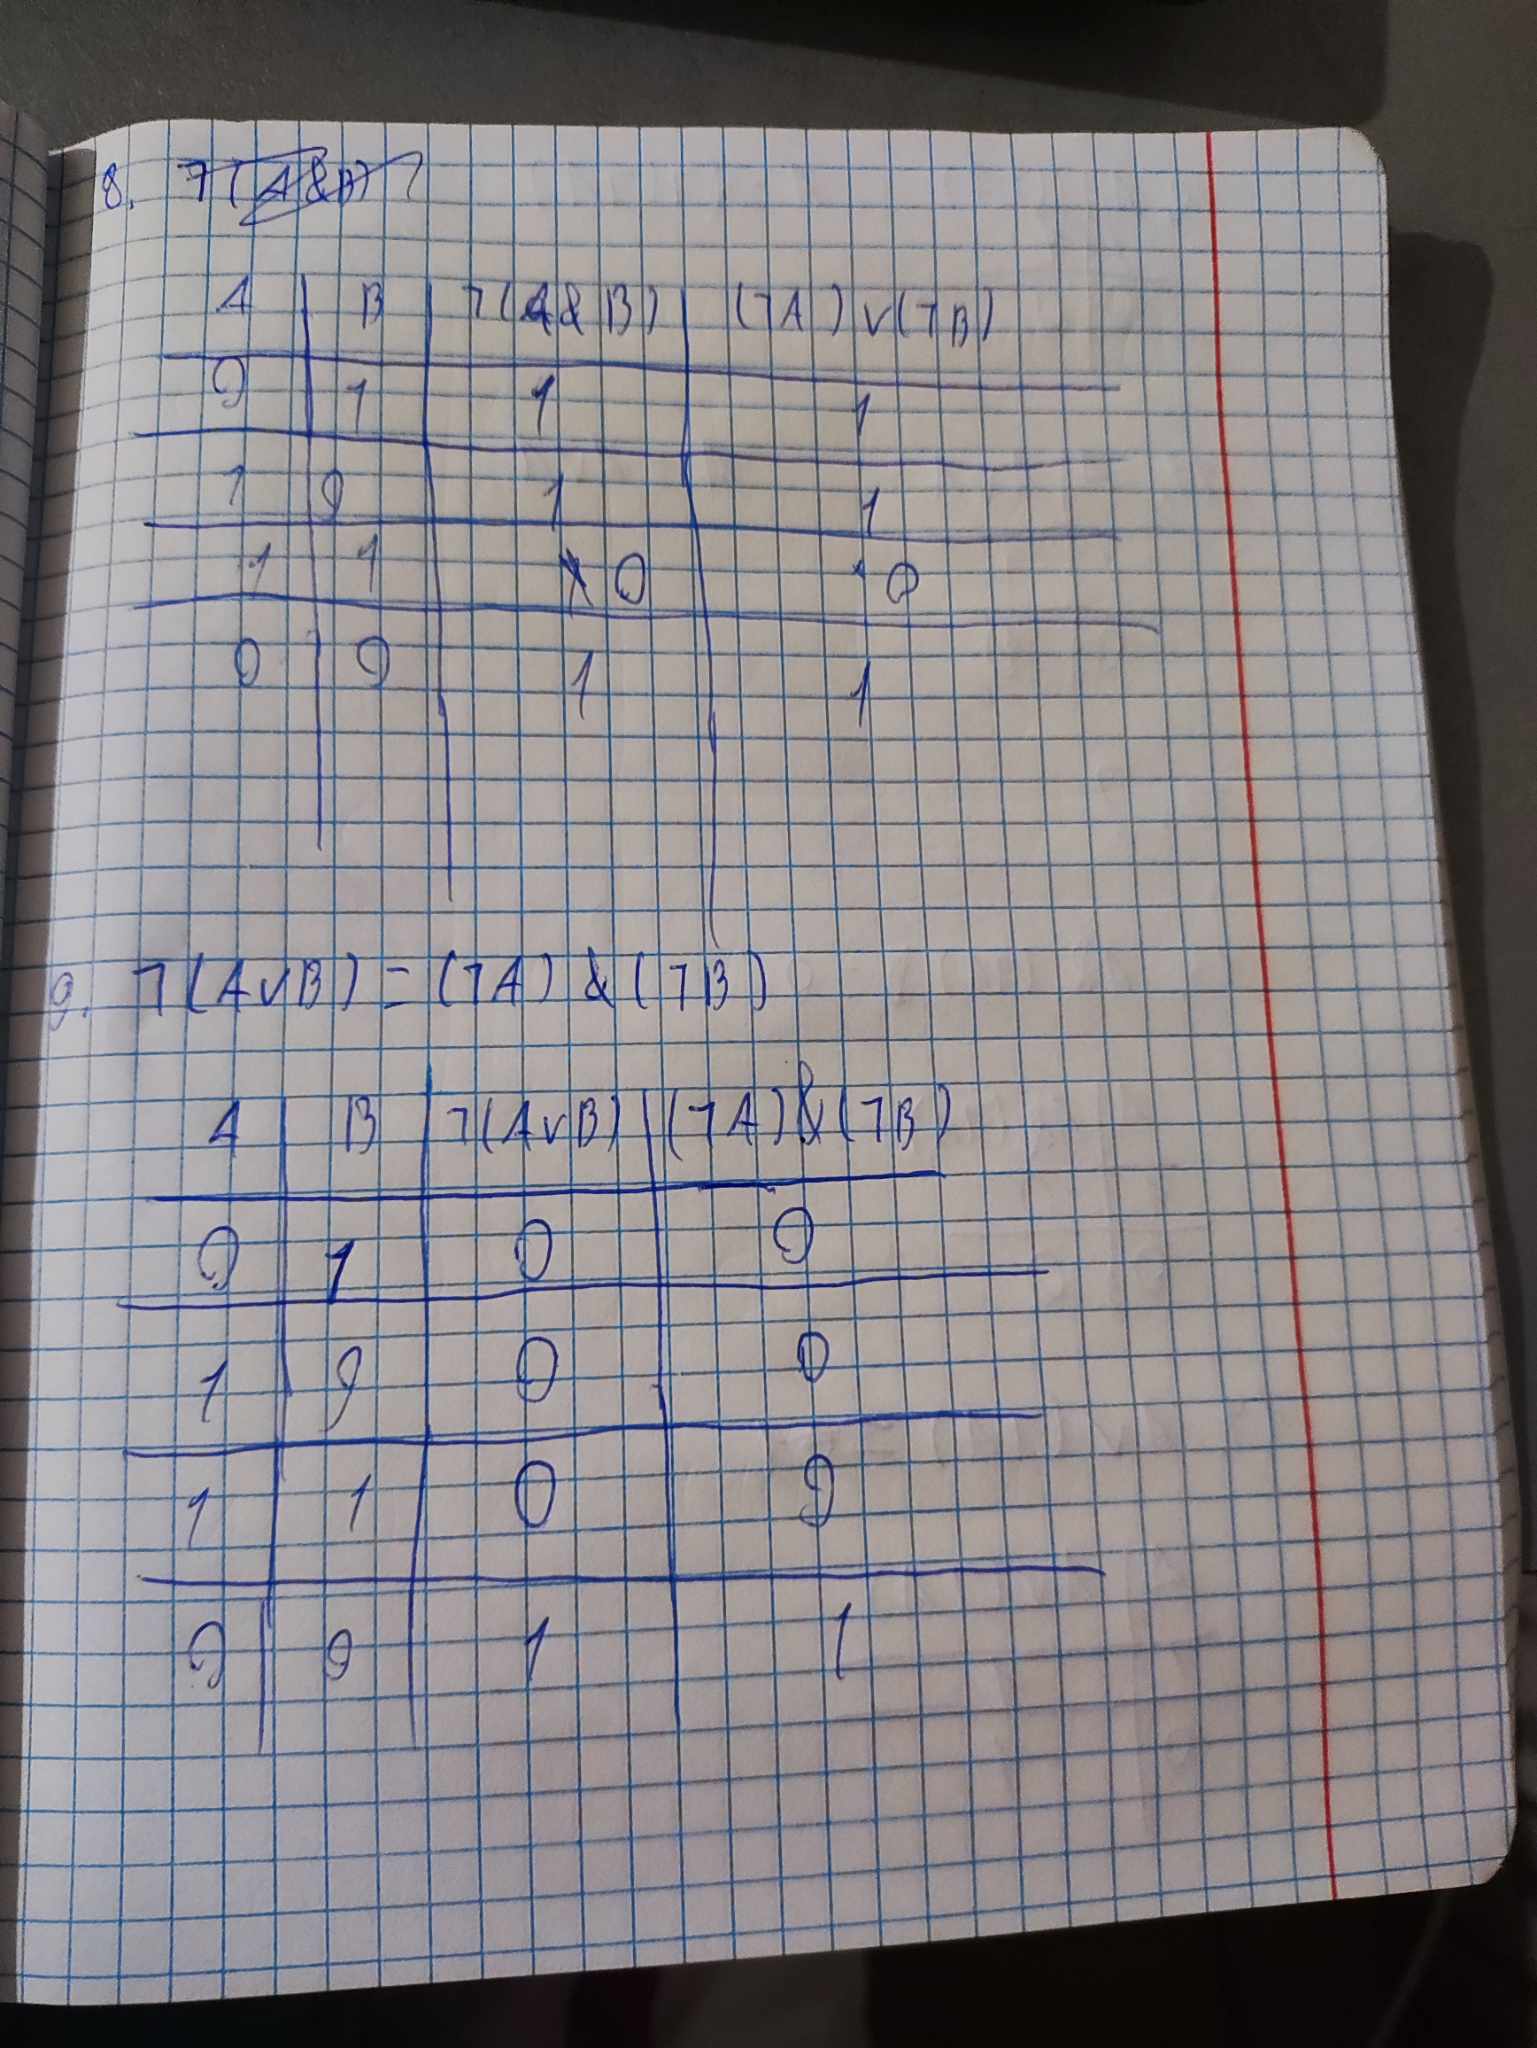 8. ¬(A&B)
A B ¬(A&B) (¬A)∨(¬B)
0 1 1 1
1 0 1 1
1 1 1 0 0
0 0 1 1
9. ¬(A∨B) = (¬A) & (¬B)
A B ¬(A∨B) (¬A)&(¬B)
0 1 0 0
1 0 0 0
1 1 0 0
0 0 1 1